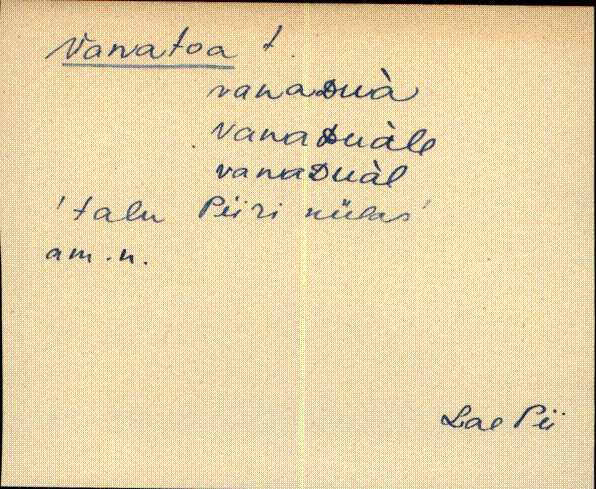 Vanatoa t.
vanaDuà
vanaDuàle
vanaDuàl
'talu Piiri külas'
am. n.
Lae Pii